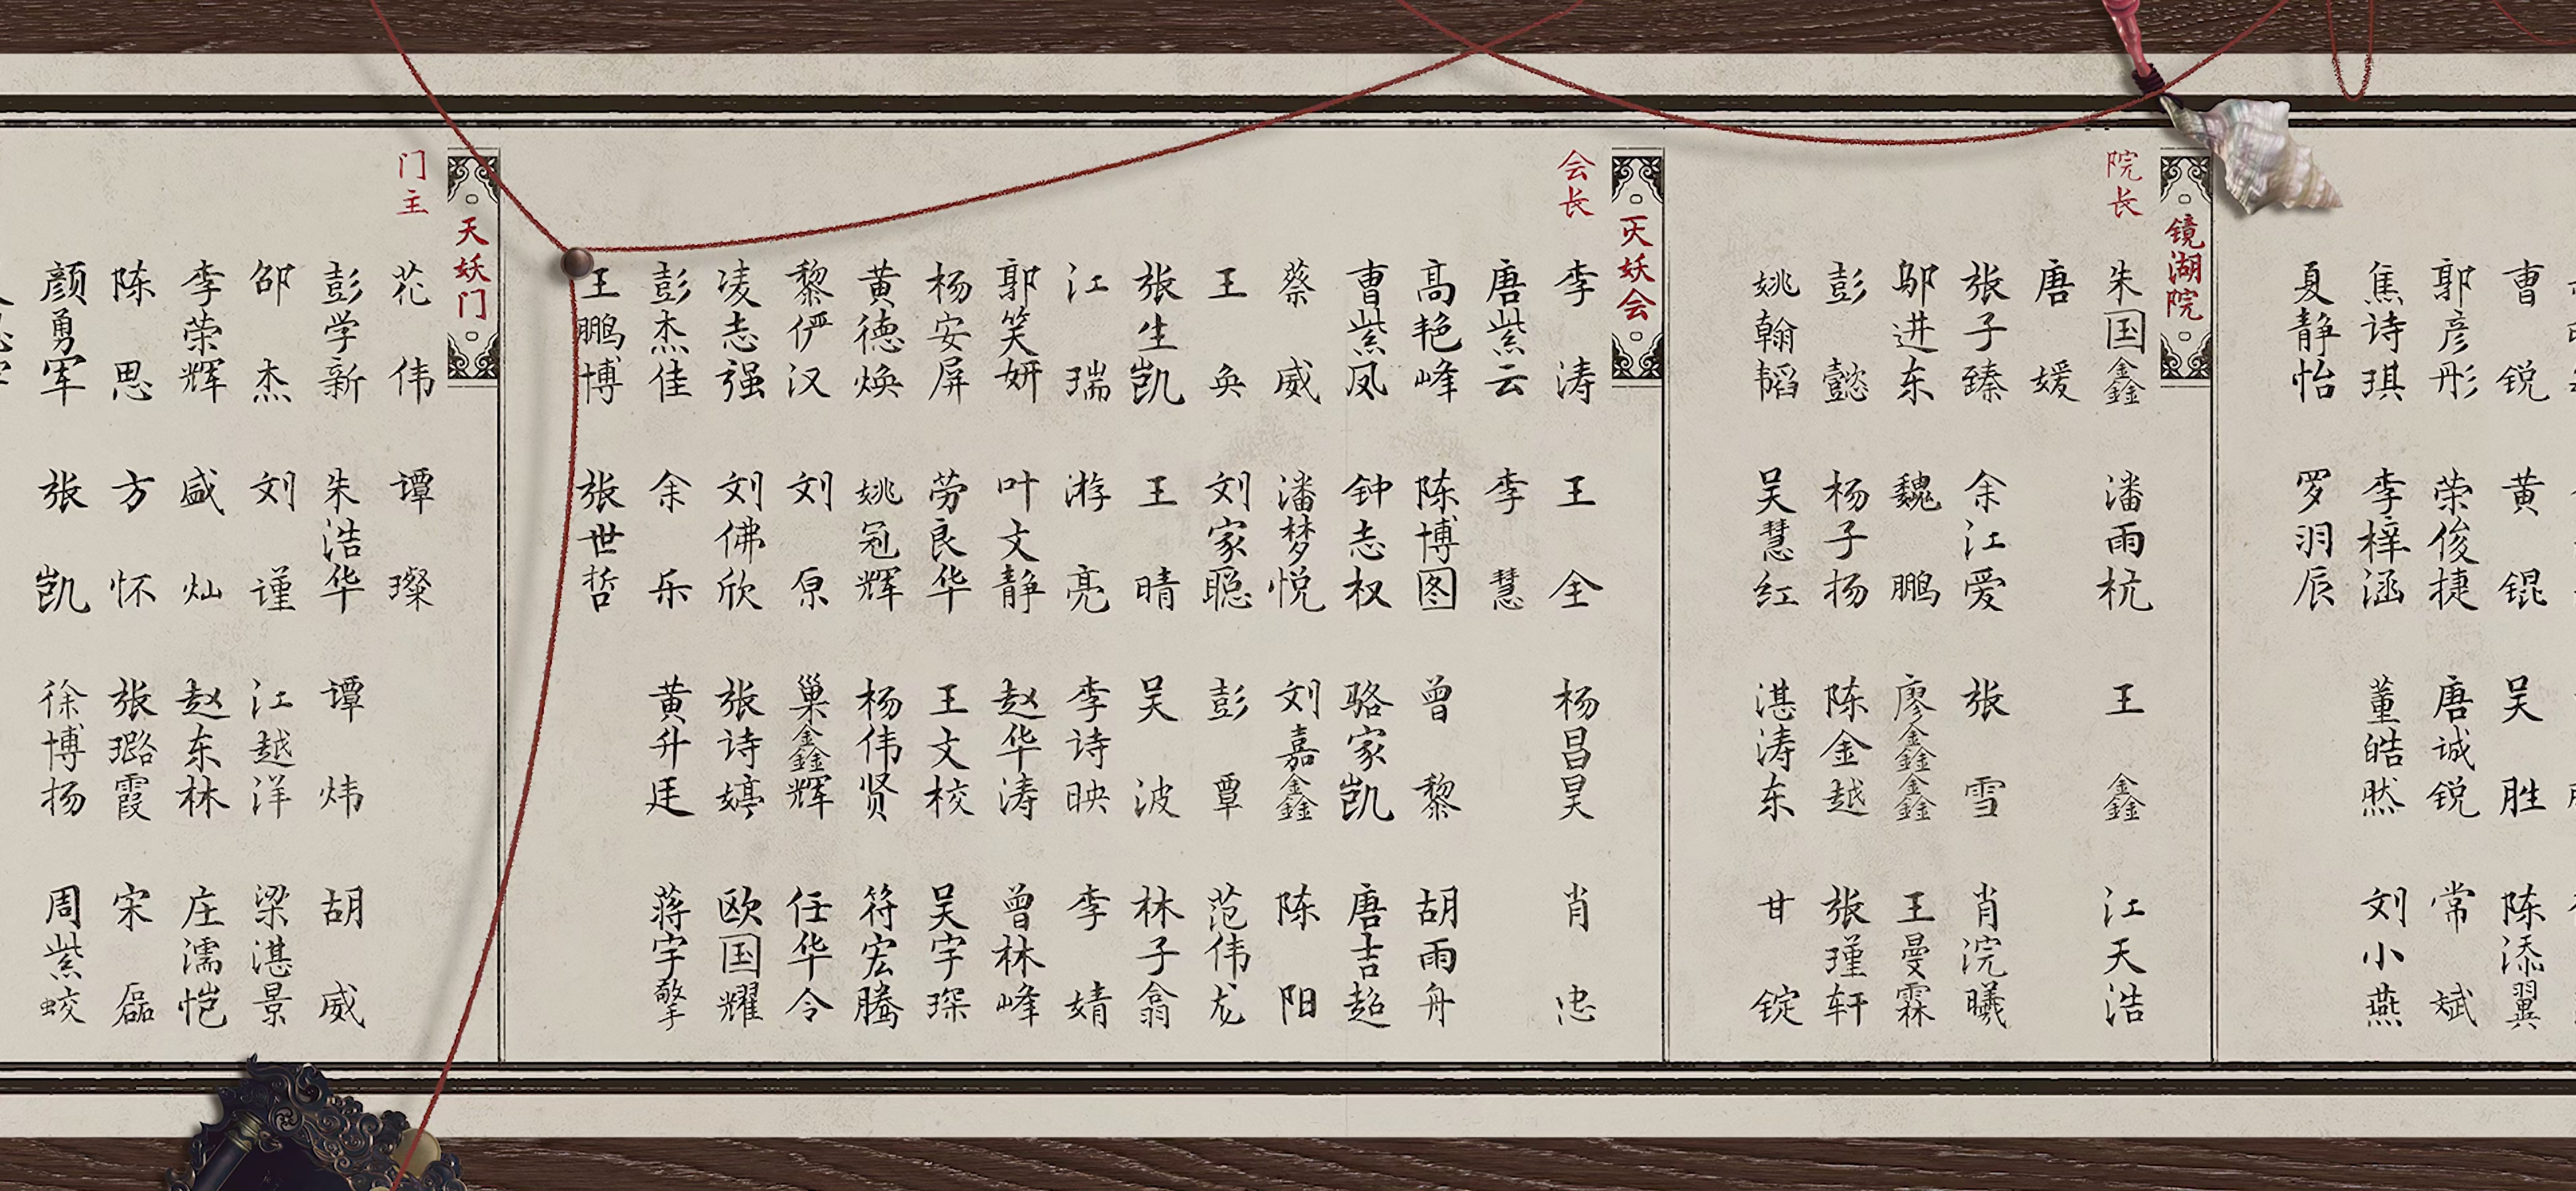 曹锐 黄锟 吴胜 陈添翼
郭彦彤 荣俊捷 唐诚锐 常斌
焦诗琪 李梓涵 董皓然 刘小燕
夏静怡 罗羽辰
镜湖院
院长 朱国鑫 潘雨杭 王鑫 江天浩
唐媛
张子臻 余江爱 张雪 肖浣曦
邬进东 魏鹏 廖鑫鑫 王曼霖
彭懿 杨子扬 陈金越 张瑾轩
姚翰韬 吴慧红 湛涛东 甘锭
灭妖会
会长 李涛 王全 杨昌昊 肖忠
唐紫云 李慧
高艳峰 陈博图 曾黎 胡雨舟
曹紫凤 钟志权 骆家凯 唐吉超
蔡威 潘梦悦 刘嘉鑫 陈阳
王奂 刘家聪 彭覃 范伟龙
张生凯 王晴 吴波 林子翕
江瑞 游亮 李诗映 李婧
郭笑妍 叶文静 赵华涛 曾林峰
杨安屏 劳良华 王文校 吴宇琛
黄德焕 姚冠辉 杨伟贤 符宏腾
黎俨汉 刘原 巢鑫辉 任华令
凌志强 刘佛欣 张诗婷 欧国耀
彭杰佳 余乐 黄升廷 蒋宇擎
王鹏博 张世哲
天妖门
门主 苑伟 谭璨
彭学新 朱浩华 谭炜 胡威
邰杰 刘谨 江越洋 梁湛景
李荣辉 盛灿 赵东林 庄濡恺
陈思 方怀 张璐霞 宋磊
颜勇军 张凯 徐博扬 周紫蛟